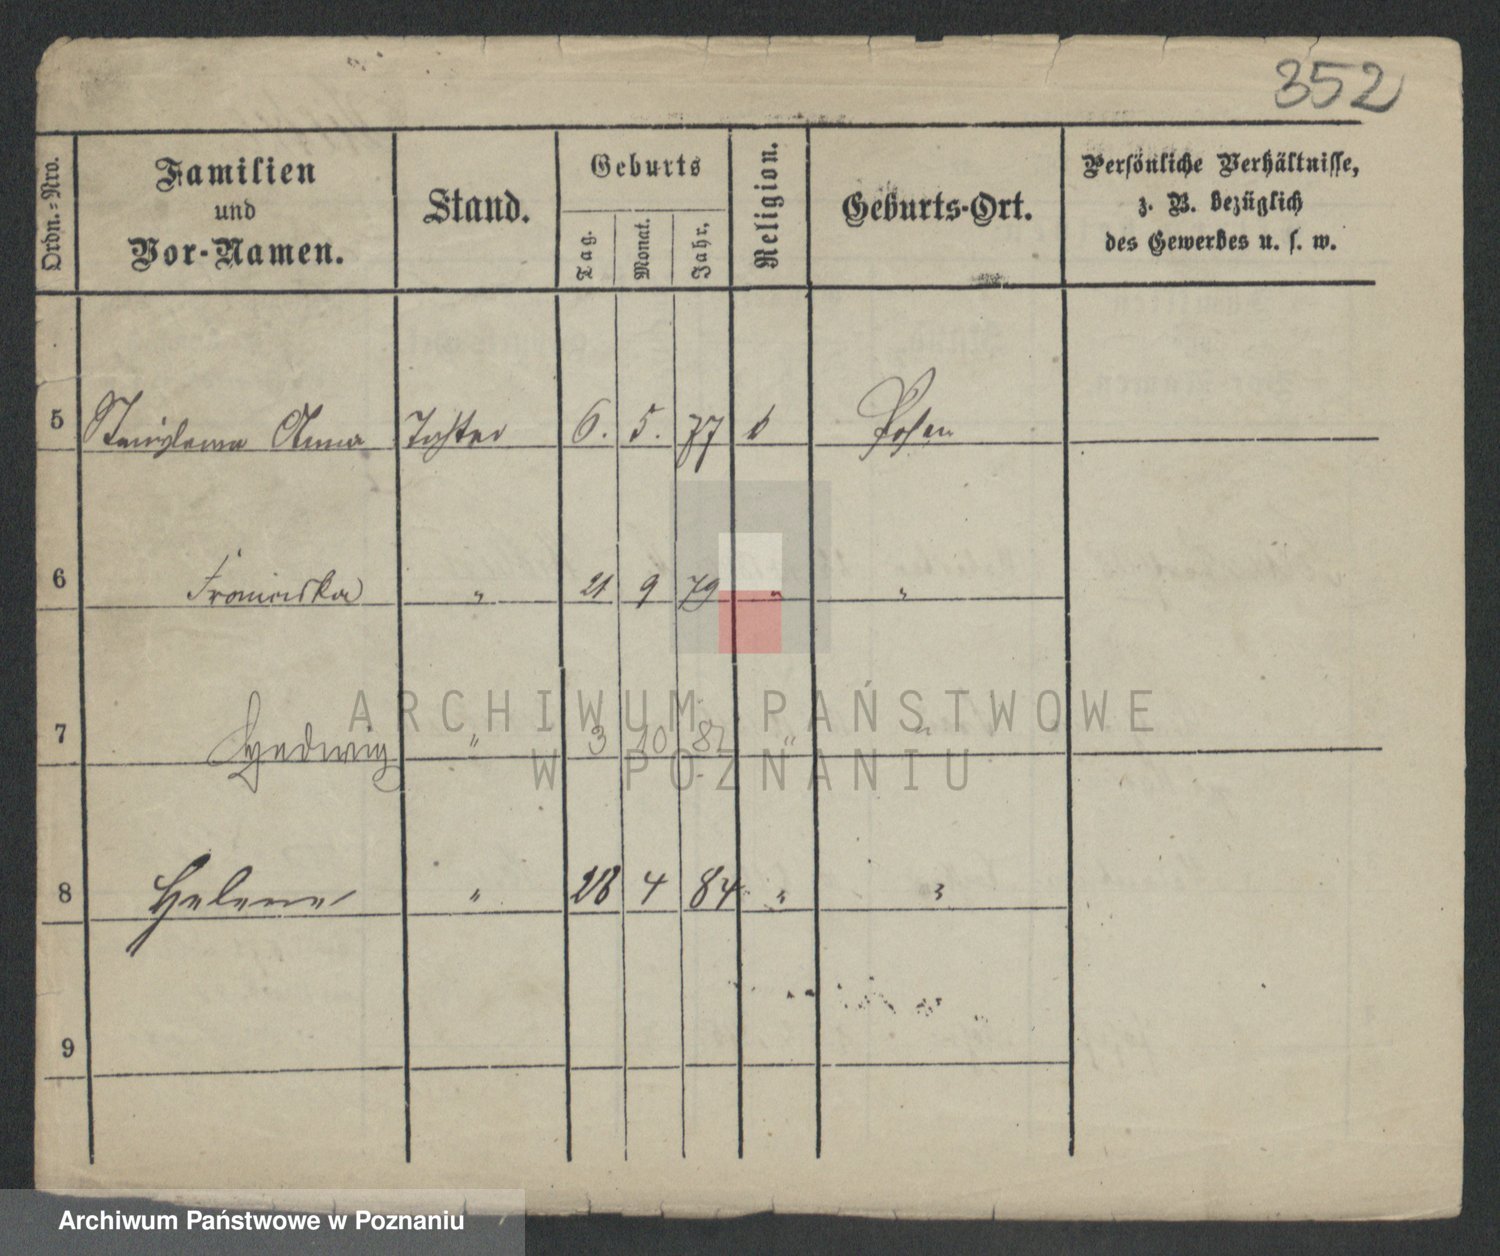 352
Ordn.-Nro.
Familien
und
Vor-Namen.
Stand.
Geburts
Tag.
Monat.
Jahr.
Religion.
Geburts-Ort.
Persönliche Verhältnisse,
z. B. bezüglich
des Gewerbes u. s. w.
5 Stanislawa Anna Tochter 6. 5. 77 k Posen
6 Franciska " 21 9 79 " "
7 Hedwig " 3 10 82 " "
8 Helene " 28 4 84 " "
9
ARCHIWUM PAŃSTWOWE
W POZNANIU
Archiwum Państwowe w Poznaniu